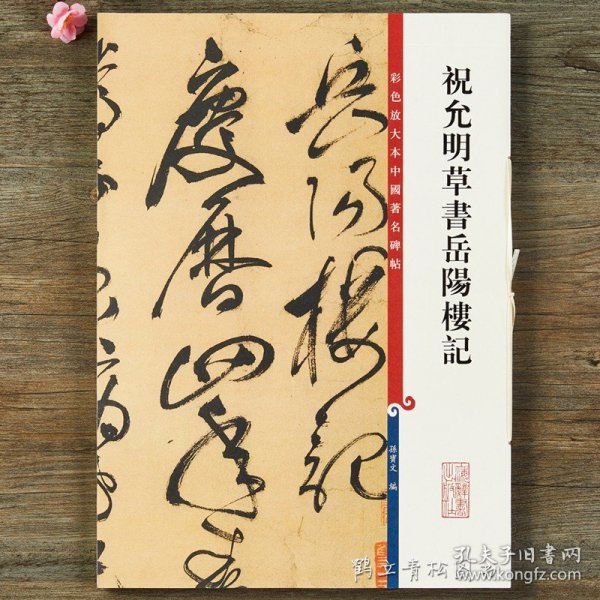 祝允明草書岳陽樓記
彩色放大本中國著名碑帖
孫寶文 編
岳陽樓記
慶曆四年春
上海辭書出版社
鹤立青松图书
孔夫子旧书网
www.kongfz.com